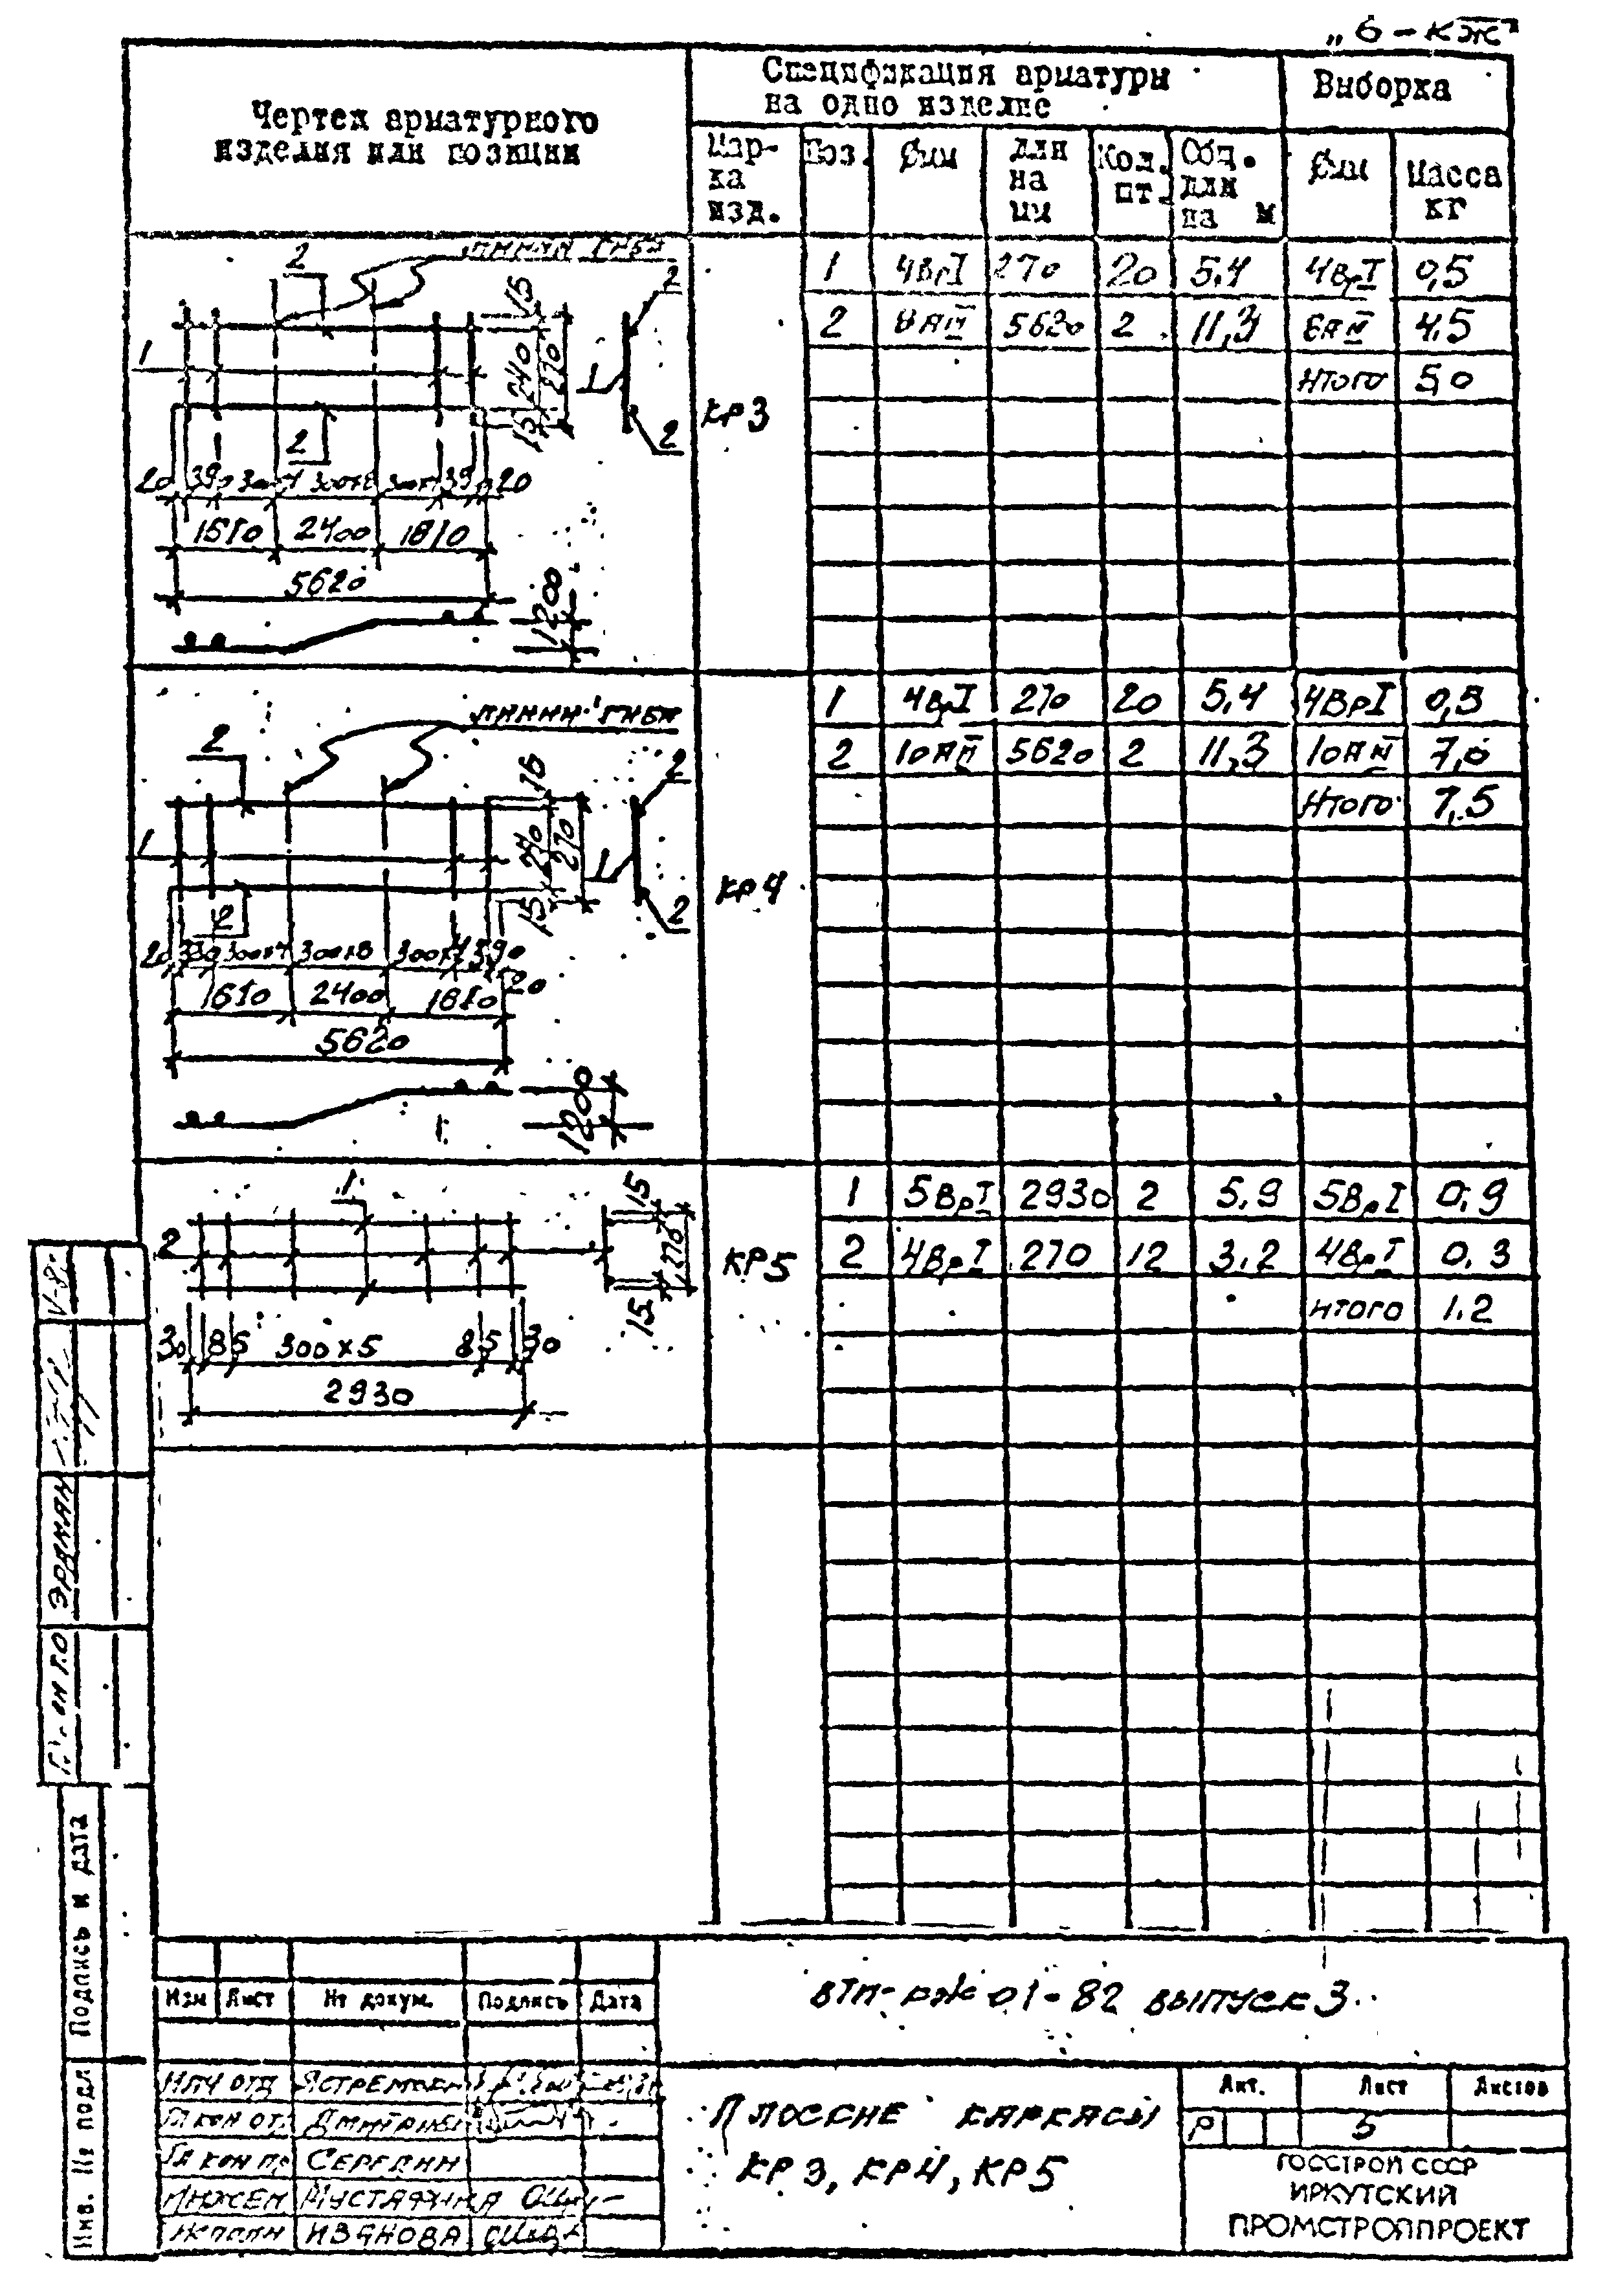 „6-КЖ"
Чертеж арматурного
изделия или позиции
Спецификация арматуры
на одно изделие
Выборка
Мар-
ка
изд.
Поз.
Øмм
Дли
на
мм
Кол.
шт.
Общ.
дли
на м
Øмм
Масса
кг
линии гиба
2
2
1
15
240
270
15
1
2
2
20 390 300х4 300х8 300х4 390 20
1610 2400 1610
5620
1200
КР3
1 4ВрI 270 20 5,4 4ВрI 0,5
2 8АIII 5620 2 11,3 8АIII 4,5
Итого 5,0
линии гиба
2
2
1
15
240
270
15
1
2
2
20 390 300х4 300х8 300х4 390 20
1610 2400 1610
5620
1200
КР4
1 4ВрI 270 20 5,4 4ВрI 0,5
2 10АIII 5620 2 11,3 10АIII 7,0
Итого 7,5
1
2
15
270
15
30 85 300х5 85 30
2930
КР5
1 5ВрI 2930 2 5,9 5ВрI 0,9
2 4ВрI 270 12 3,2 4ВрI 0,3
Итого 1.2
ЭРДМАН
Подпись и дата
Инв. № подл
Изм Лист № докум. Подпись Дата
Нач отд
Гл кон от. Дмитриев
Гл кон пр Сергдин
Инжен Мустафина
Исполн Иванова
ВТП-РЖ 01-82 выпуск 3
Плоские каркасы
КР3, КР4, КР5
Лит. Лист Листов
Р 5
ГОССТРОЙ СССР
ИРКУТСКИЙ
ПРОМСТРОЙПРОЕКТ